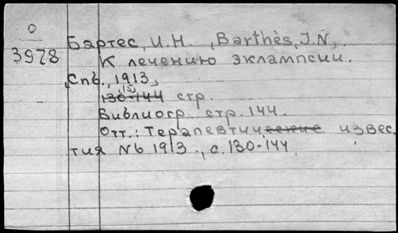 0
3978
Бартес, И.Н. , Barthès, J.N.,
К лечению эклампсии.
Спб., 1913,
15
130-144 стр.
Библиогр. стр. 144.
Отт.: Терапевтические извес
тия №6 1913., с. 130-144